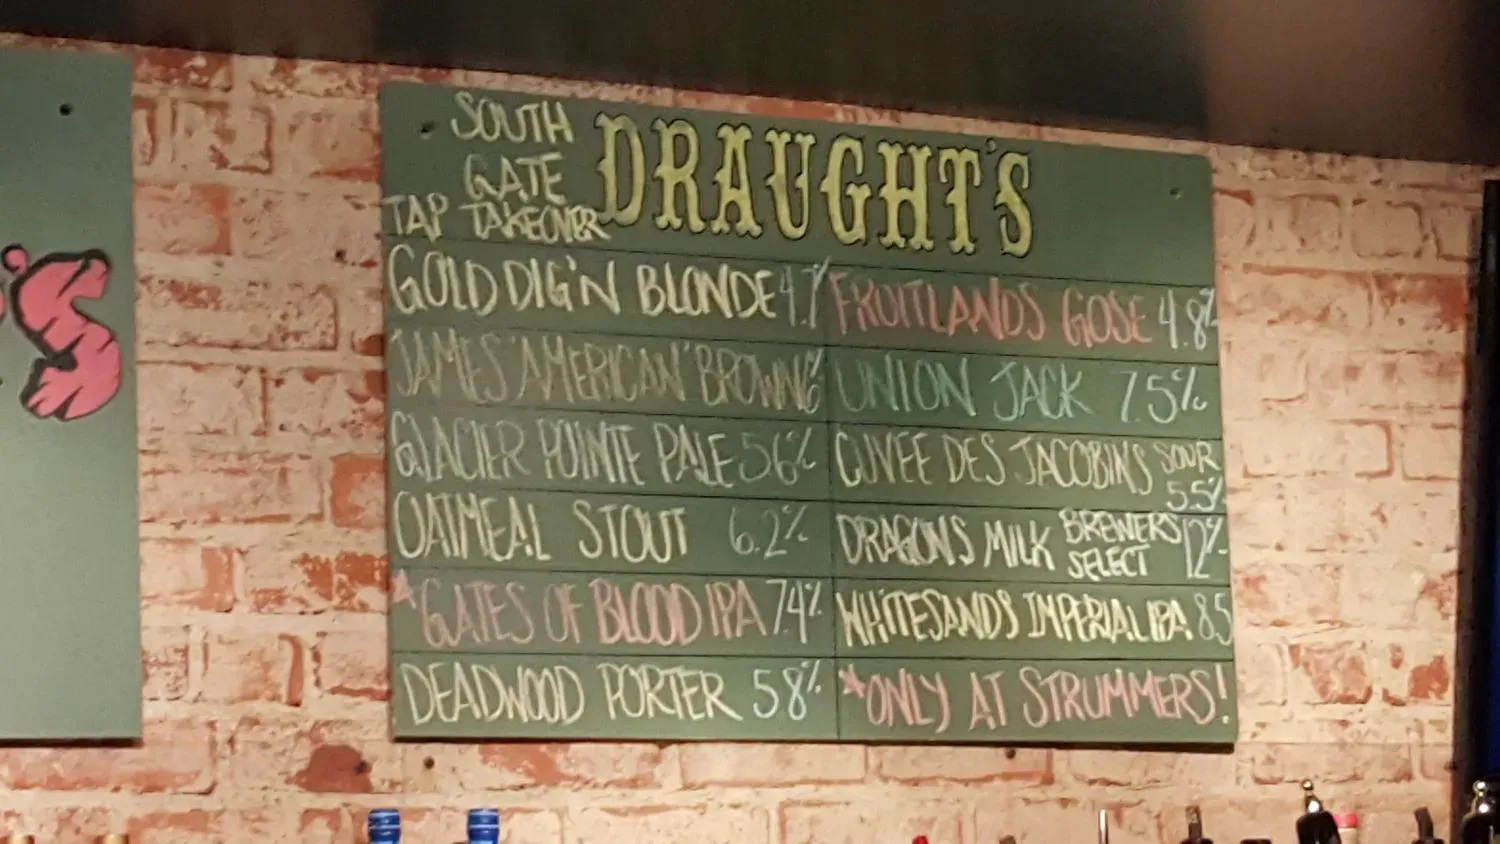 SOUTH
GATE
TAP TAKEOVER
DRAUGHT'S
GOLD DIG'N BLONDE 4.7%
JAMES' AMERICAN BROWN 6%
GLACIER POINTE PALE 5.6%
OATMEAL STOUT 6.2%
*GATES OF BLOOD IPA 7.4%
DEADWOOD PORTER 5.8%
FRUITLANDS GOSE 4.8%
UNION JACK 7.5%
CUVEE DES JACOBINS SOUR
5.5%
DRAGONS MILK BREWERS
SELECT 12%
WHITESANDS IMPERIAL IPA 8.5
*ONLY AT STRUMMERS!
'S